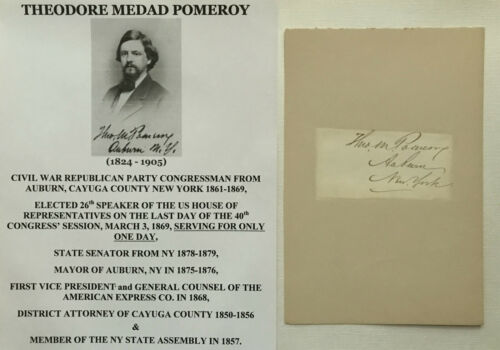 THEODORE MEDAD POMEROY
Theo M Pomeroy
Auburn N.Y.
(1824 - 1905)
CIVIL WAR REPUBLICAN PARTY CONGRESSMAN FROM
AUBURN, CAYUGA COUNTY NEW YORK 1861-1869,
ELECTED 26th SPEAKER OF THE US HOUSE OF
REPRESENTATIVES ON THE LAST DAY OF THE 40th
CONGRESS' SESSION, MARCH 3, 1869, SERVING FOR ONLY
ONE DAY,
STATE SENATOR FROM NY 1878-1879,
MAYOR OF AUBURN, NY IN 1875-1876,
FIRST VICE PRESIDENT and GENERAL COUNSEL OF THE
AMERICAN EXPRESS CO. IN 1868,
DISTRICT ATTORNEY OF CAYUGA COUNTY 1850-1856
&
MEMBER OF THE NY STATE ASSEMBLY IN 1857.
Theo M Pomeroy
Auburn
New York